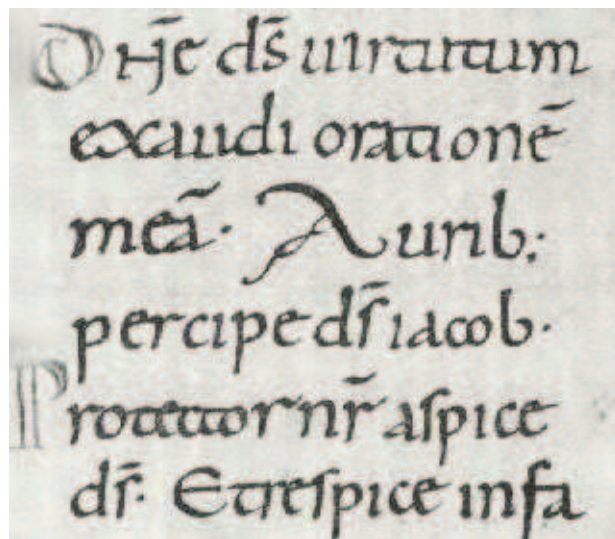 Dn̄e ds̄ uirtutum
exaudi orationē
meā· Aurib;
percipe ds̄ iacob·
Protector nr̄ aspice
ds̄· Et respice in fa